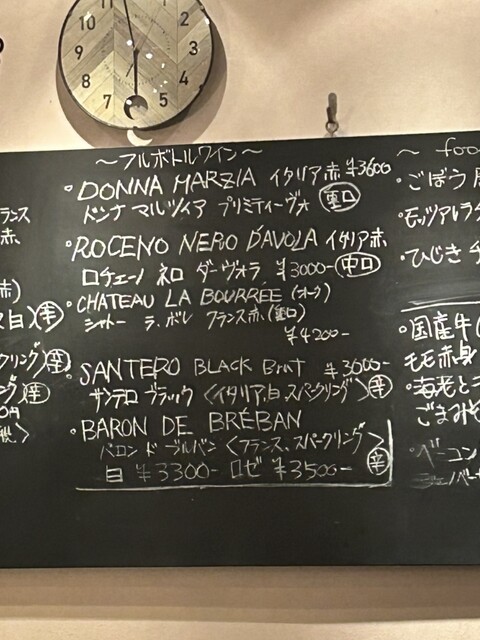 12
11
1
10
2
9
3
8
4
7
6
5
～フルボトルワイン～
・DONNA MARZIA イタリア赤 ¥3600
ドンナ マルツィア プリミティーヴォ 重口
・ROCENO NERO D'AVOLA イタリア赤
ロチェーノ ネロ ダーヴォラ ¥3000- 中口
・CHATEAU LA BOURRÉE (オーク)
シャトー ラ、ボレ フランス赤、(重口)
¥4200-
・SANTERO BLACK Brut ¥3000-
サンテロ ブラック〈イタリア,白,スパークリング〉辛
・BARON DE BRÉBAN
バロン ド ブルバン〈フランス、スパークリング〉
白 ¥3300- ロゼ ¥3500- 辛
ランス
赤
赤)
白)辛
クリング)辛
辛
～ foo
・ごぼう
・モッツァレラ
・ひじき
・国産牛(
モモ赤身
・海老と
ごまみそ
・ベーコン